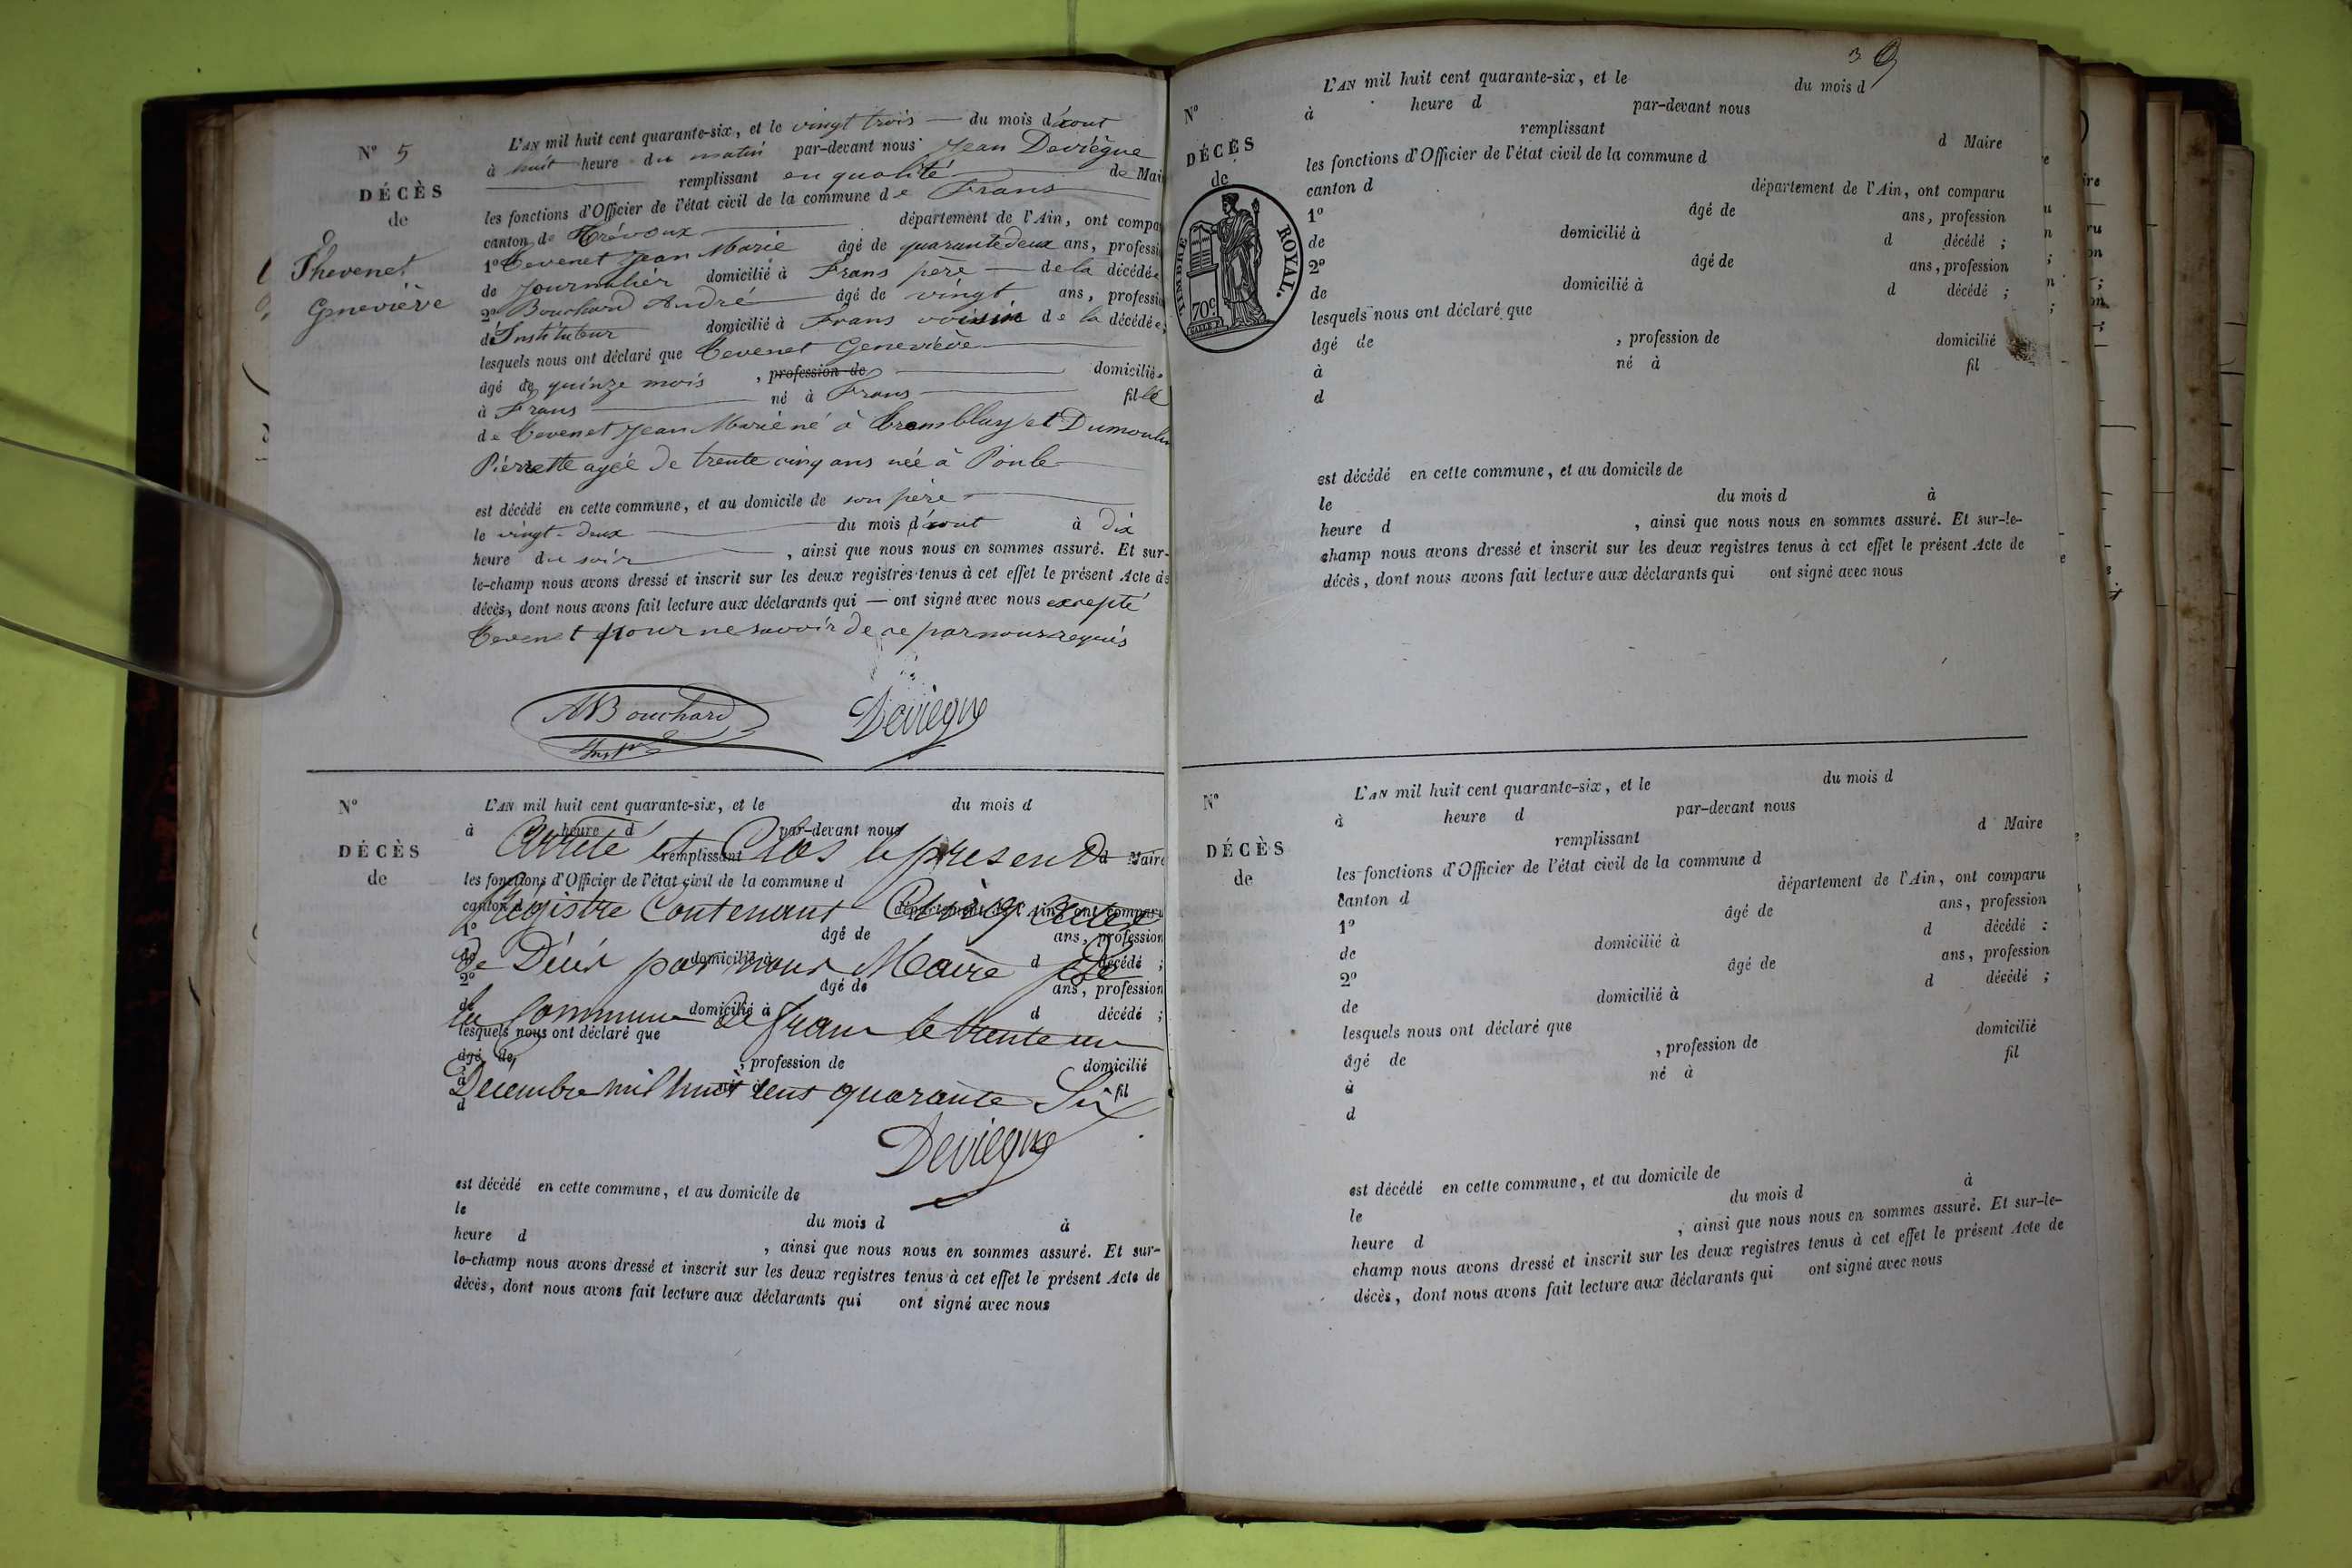 N° 5
DÉCÈS
de
Thevenet
Geneviève
L'AN mil huit cent quarante-six, et le vingt trois du mois d'aout
à huit heure du matin par-devant nous Jean Deviègue
remplissant en qualité de Mai
les fonctions d'Officier de l'état civil de la commune de Frans
canton de Trévoux département de l'Ain, ont compa
1° Tevenet Jean Marie âgé de quarante deux ans, professi
de Journalier domicilié à Frans père de la décédée
2° Bouchard André âgé de vingt ans, professio
d'Instituteur domicilié à Frans voisin de la décédée,
lesquels nous ont déclaré que Tevenet Geneviève
âgé de quinze mois , profession de domiciliée
à Frans né à Frans fille
de Tevenet Jean Marie né à Tremblay et Dumoulin
Pierrette agée de trente cinq ans née à Poule
est décédé en cette commune, et au domicile de son père
le vingt-deux du mois d'aout à dix
heure du soir , ainsi que nous nous en sommes assuré. Et sur-
le-champ nous avons dressé et inscrit sur les deux registres tenus à cet effet le présent Acte de
décès, dont nous avons fait lecture aux déclarants qui — ont signé avec nous excepté
Tevenet pour ne savoir de ce par nous requis
ABouchard
Deviègue
N°
DÉCÈS
de
L'AN mil huit cent quarante-six, et le du mois d
à heure d par-devant nous
Arrêté et Clos le présent
remplissant d Maire
les fonctions d'Officier de l'état civil de la commune d
Régistre Contenant Cinq Actes
canton d département de l'Ain, ont comparu
1° âgé de ans, profession
de domicilié à d décédé ;
de Décès par nous Maire de
2° âgé de ans, profession
de domicilié à d décédé ;
la Commune de Frans le trente un
lesquels nous ont déclaré que
âgé de , profession de domicilié
à né à fil
Décembre mil huit cent quarante Six
d
Deviegue
est décédé en cette commune, et au domicile de
le du mois d à
heure d , ainsi que nous nous en sommes assuré. Et sur-
le-champ nous avons dressé et inscrit sur les deux registres tenus à cet effet le présent Acte de
décès, dont nous avons fait lecture aux déclarants qui ont signé avec nous
39
N°
DÉCÈS
de
TIMBRE ROYAL.
70c
L'AN mil huit cent quarante-six, et le du mois d
à heure d par-devant nous
remplissant d Maire
les fonctions d'Officier de l'état civil de la commune d
canton d département de l'Ain, ont comparu
1° âgé de ans, profession
de domicilié à d décédé ;
2° âgé de ans, profession
de domicilié à d décédé ;
lesquels nous ont déclaré que
âgé de , profession de domicilié
à né à fil
d
est décédé en cette commune, et au domicile de
le du mois d à
heure d , ainsi que nous nous en sommes assuré. Et sur-le-
champ nous avons dressé et inscrit sur les deux registres tenus à cet effet le présent Acte de
décès, dont nous avons fait lecture aux déclarants qui ont signé avec nous
N°
DÉCÈS
de
L'AN mil huit cent quarante-six, et le du mois d
à heure d par-devant nous
remplissant d Maire
les fonctions d'Officier de l'état civil de la commune d
canton d département de l'Ain, ont comparu
1° âgé de ans, profession
de domicilié à d décédé :
2° âgé de ans, profession
de domicilié à d décédé ;
lesquels nous ont déclaré que
âgé de , profession de domicilié
à né à fil
d
est décédé en cette commune, et au domicile de
le du mois d à
heure d , ainsi que nous nous en sommes assuré. Et sur-le-
champ nous avons dressé et inscrit sur les deux registres tenus à cet effet le présent Acte de
décès, dont nous avons fait lecture aux déclarants qui ont signé avec nous